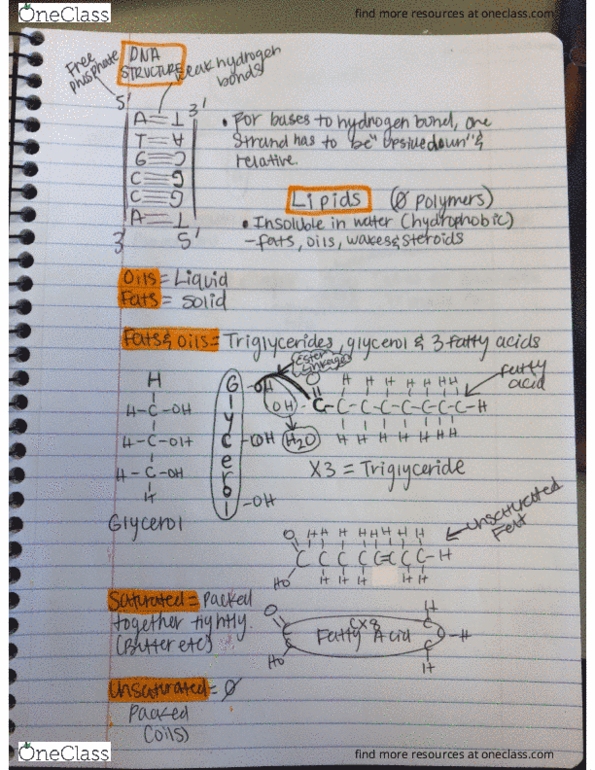 OneClass
find more resources at oneclass.com
Free phosphate
DNA STRUCTURE
weak hydrogen bonds
5' 3'
A T
T A
G C
C G
C G
A T
3' 5'
• For bases to hydrogen bond, one
strand has to be "upside down" &
relative.
Lipids (∅ polymers)
• Insoluble in water (hydrophobic)
- fats, oils, waxes & steroids
Oils = Liquid
Fats = Solid
Fats & oils = Triglycerides, glycerol & 3 fatty acids
Ester Linkage
fatty acid
H
H-C-OH
H-C-OH
H-C-OH
H
Glycerol
Glycerol
-OH
-OH
-OH
OH
H2O
O H H H H H H H
C-C-C-C-C-C-C-C-H
H H H H H H H
X3 = Triglyceride
Unsaturated Fat
O H H H H H H H H
C C C C C=C C C-H
HO H H H H H
Saturated = Packed
together tightly
(Butter etc)
O
HO
CX8
Fatty Acid
H
C-H
H
Unsaturated = ∅
Packed
(oils)
OneClass
find more resources at oneclass.com